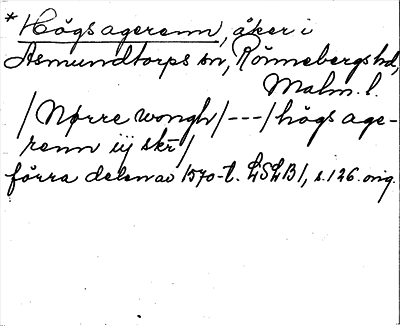 * Högsagerenn, åker i
Asmundtorps sn, Rönnebergs hd,
Malm. l.
/Nørre wongh/---/högs age-
renn iij skr/
förra delen av 1570-t. LSLB 1, s. 126. orig.